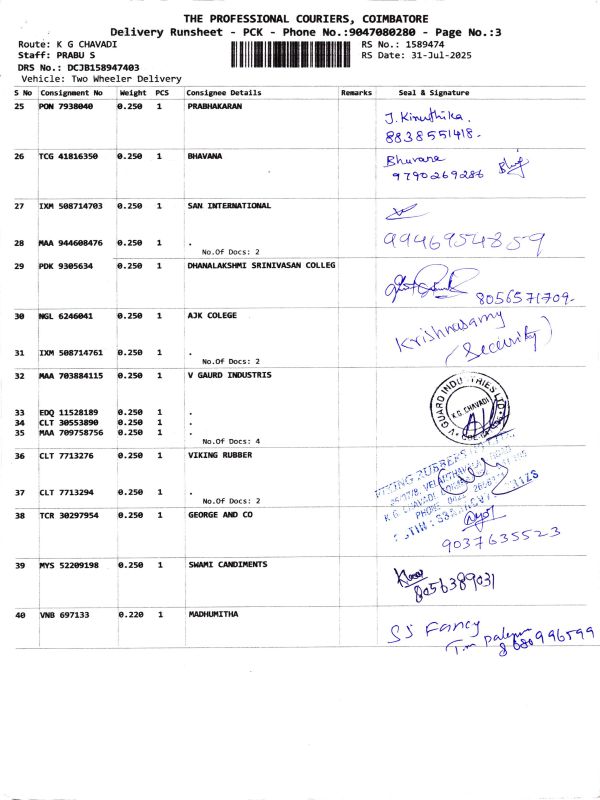 THE PROFESSIONAL COURIERS, COIMBATORE
Delivery Runsheet - PCK - Phone No.:9047080280 - Page No.:3
Route: K G CHAVADI RS No.: 1589474
Staff: PRABU S RS Date: 31-Jul-2025
DRS No.: DCJB158947403
Vehicle: Two Wheeler Delivery
S No Consignment No Weight PCS Consignee Details Remarks Seal & Signature
25 PON 7938040 0.250 1 PRABHAKARAN
J. Kiruthika.
8838551418-
26 TCG 41816350 0.250 1 BHAVANA
Bhuvana
9790269286
27 IXM 508714703 0.250 1 SAN INTERNATIONAL
28 MAA 944608476 0.250 1 .
No.Of Docs: 2
9946954859
29 PDK 9305634 0.250 1 DHANALAKSHMI SRINIVASAN COLLEG
8056571709-
30 NGL 6246041 0.250 1 AJK COLEGE
Krishnasamy
(Security)
31 IXM 508714761 0.250 1 .
No.Of Docs: 2
32 MAA 703884115 0.250 1 V GAURD INDUSTRIS
V GUARD INDUSTRIES LTD
K.G. CHAVADI
33 EDQ 11528189 0.250 1 .
34 CLT 30553890 0.250 1 .
35 MAA 709758756 0.250 1 .
No.Of Docs: 4
36 CLT 7713276 0.250 1 VIKING RUBBER
VIKING RUBBERS
K G CHAVADI
PHONE
37 CLT 7713294 0.250 1 .
No.Of Docs: 2
38 TCR 30297954 0.250 1 GEORGE AND CO
9037635523
39 MYS 52209198 0.250 1 SWAMI CANDIMENTS
8056389031
40 VNB 697133 0.220 1 MADHUMITHA
SS Fancy
8680996599